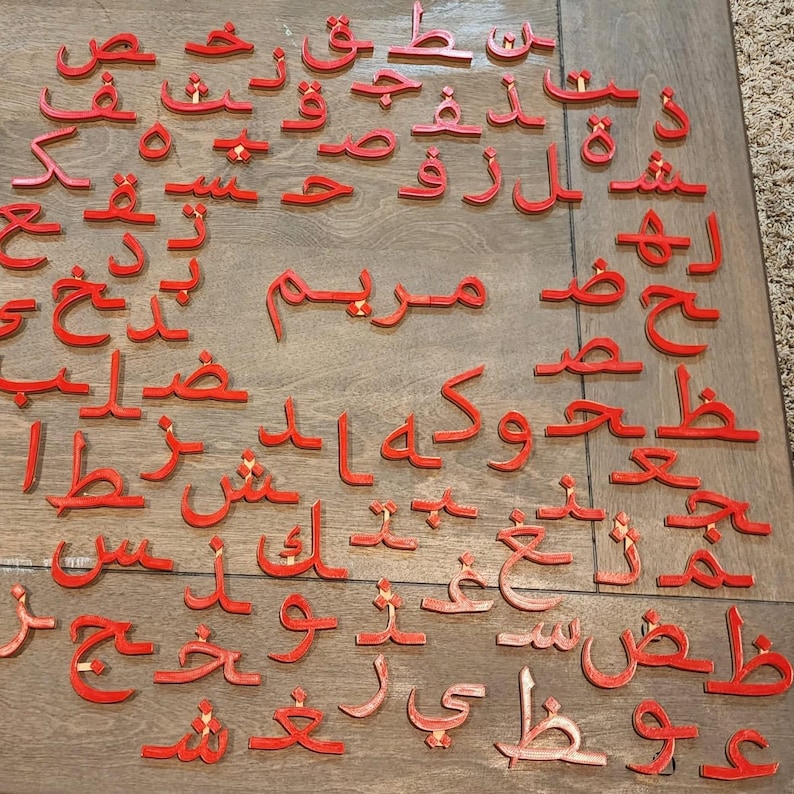 ن ط ق ز خ ص
ذ ت ذ ج ق ث ف
ة ف ص ي ه ك
ش ل ز ف ح س ق ع
ر ه د
ح ض مريم ب خ
ص د
ظ ح و ك ض ل ب
ع ه ا د ز ط ا
ج ن ب ت ش
م غ ك ذ س
ظ ض س غ ث و خ ج ز
ع و ظ ي ر غ ش